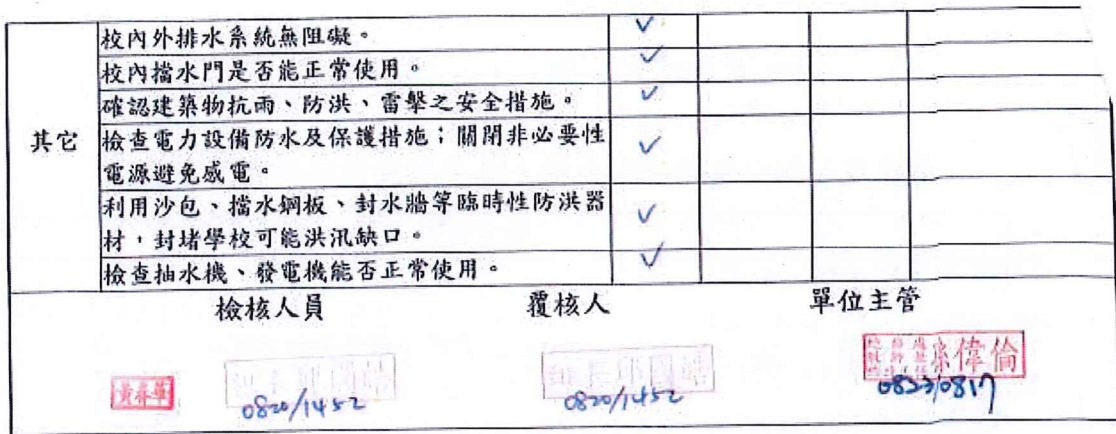 其它
校內外排水系統無阻礙。
校內擋水門是否能正常使用。
確認建築物抗雨、防洪、雷擊之安全措施。
檢查電力設備防水及保護措施；關閉非必要性
電源避免感電。
利用沙包、擋水鋼板、封水牆等臨時性防洪器
材，封堵學校可能洪汛缺口。
檢查抽水機、發電機能否正常使用。
檢核人員 覆核人 單位主管
偉倫
0820/1452 0820/1452 0823/0817